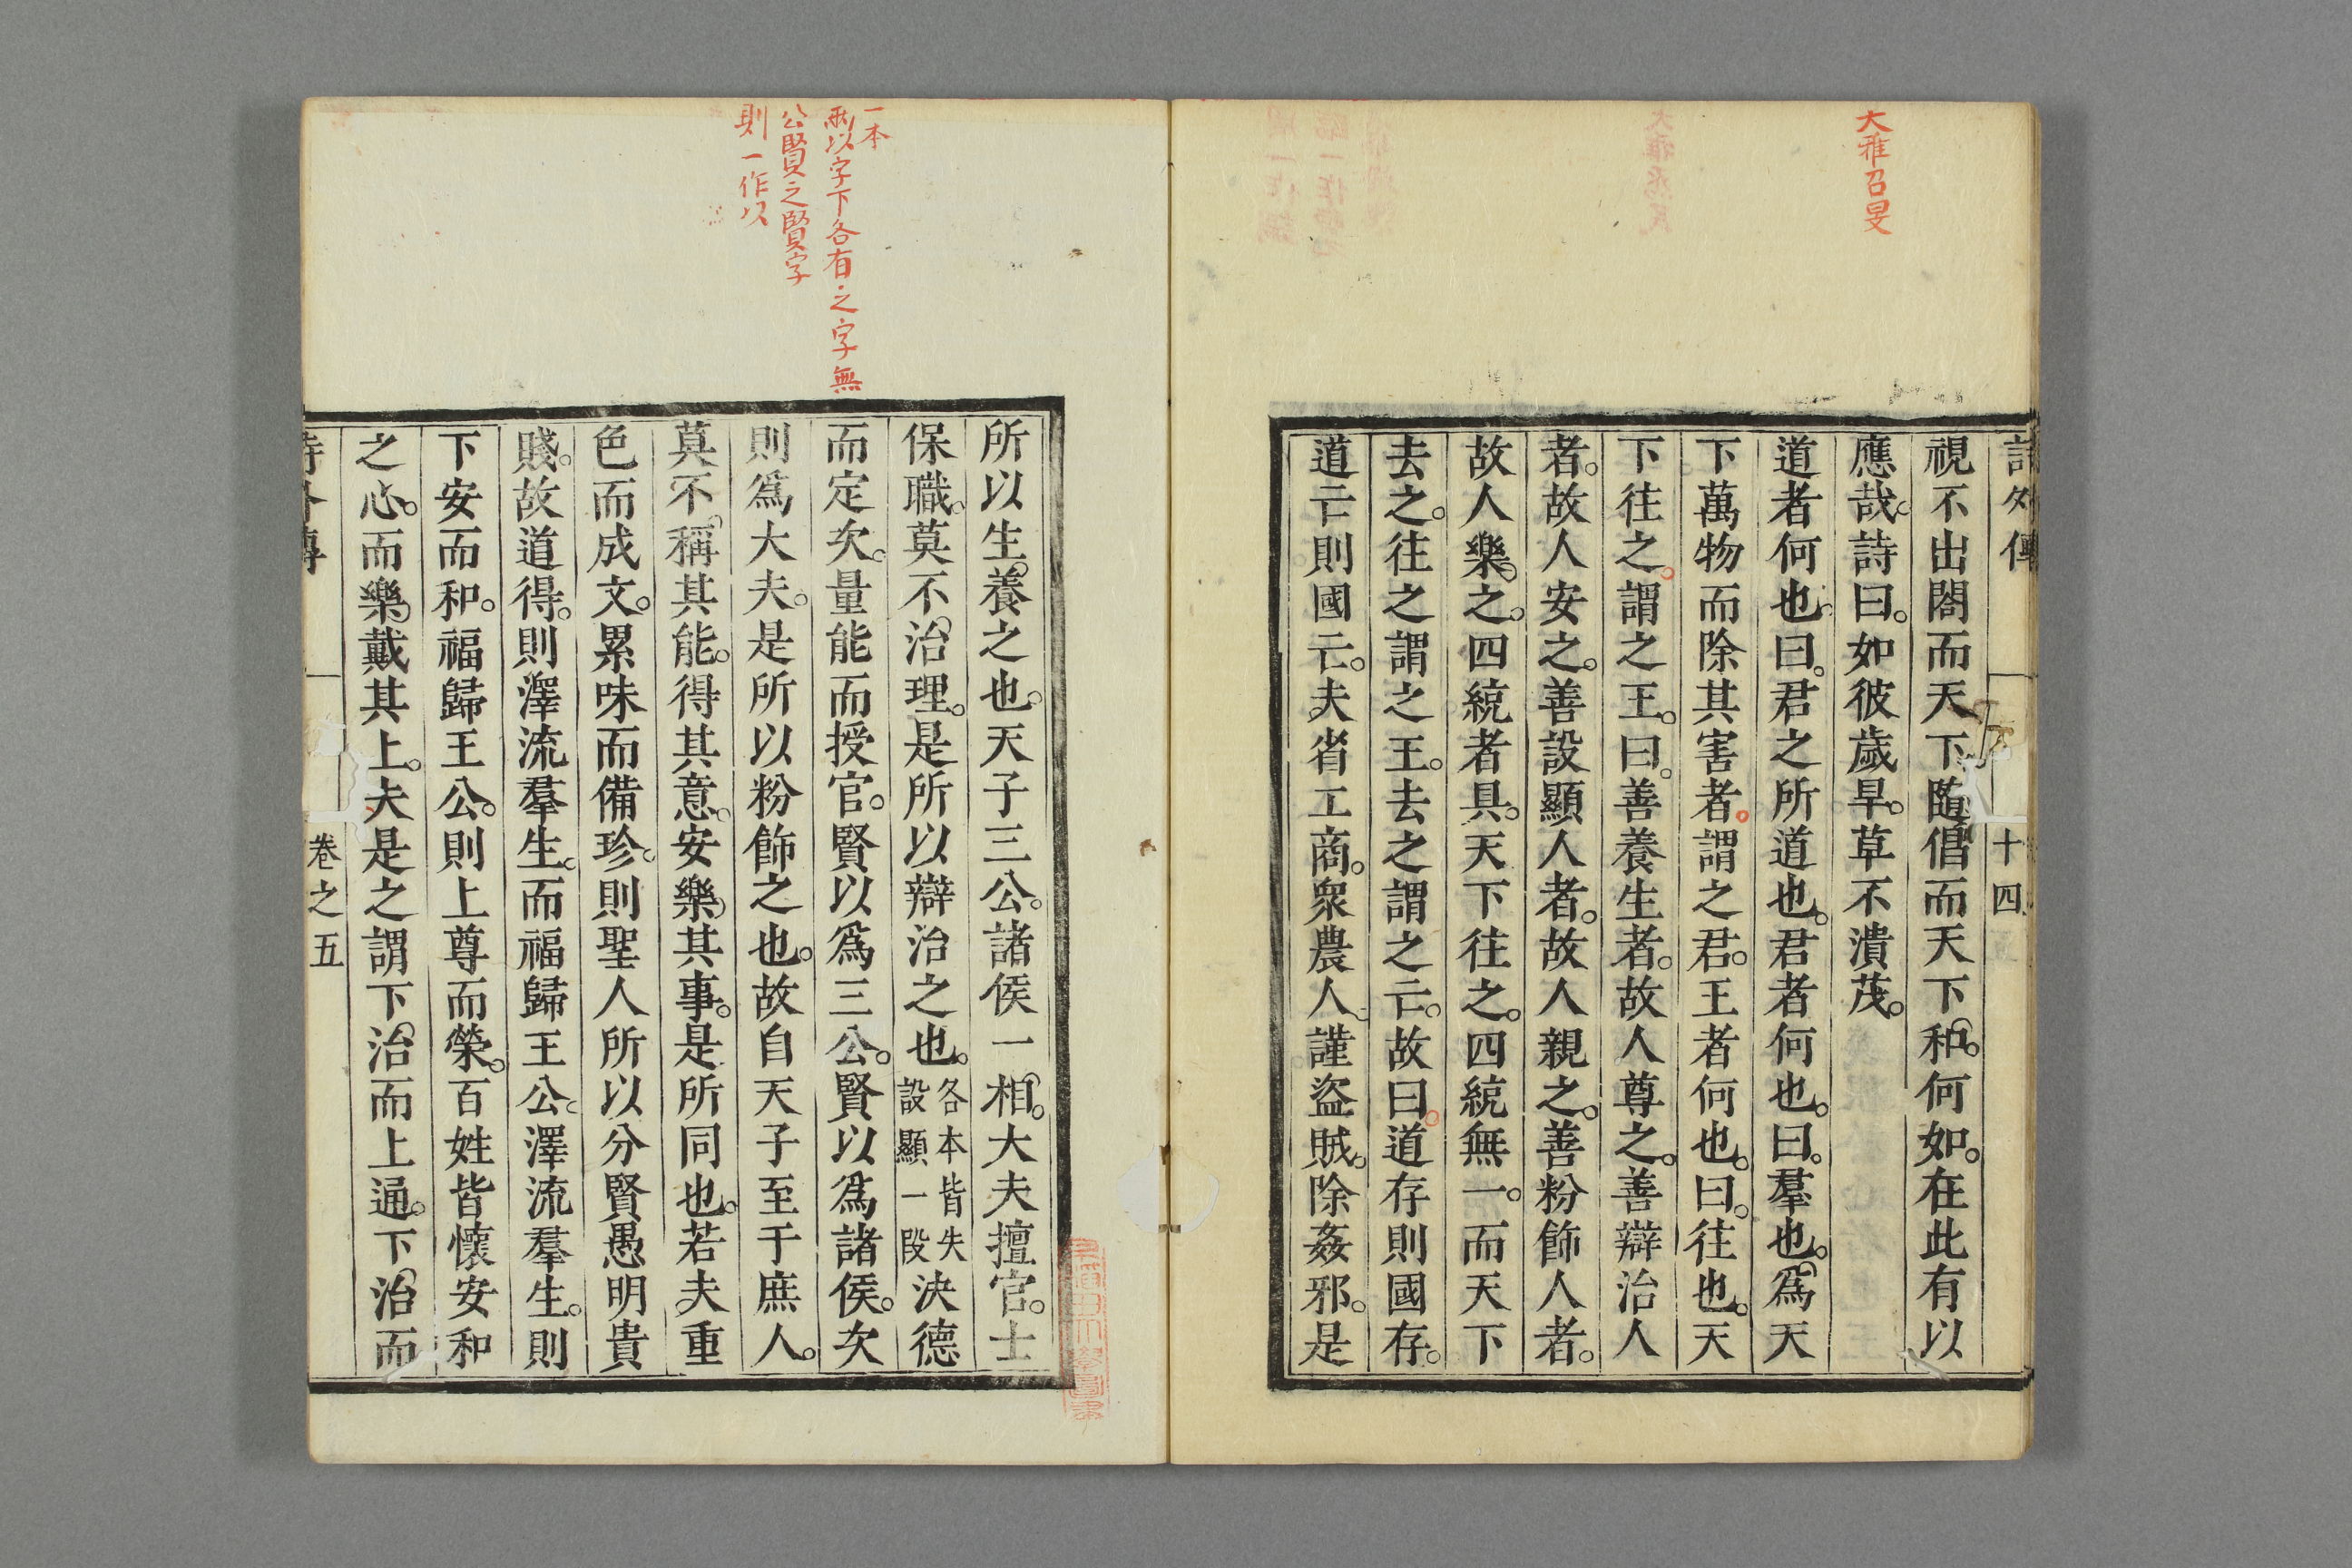 大雅召旻
詩外傳
十四
視不出閤而天下隨倡而天下和。何如。在此有以
應哉。詩曰。如彼歲旱。草不潰茂。
道者何也。曰。君之所道也。君者何也。曰。羣也。爲天
下萬物而除其害者。謂之君。王者何也。曰。往也。天
下往之。謂之王。曰。善養生者。故人尊之。善辯治人
者。故人安之。善設顯人者。故人親之。善粉飾人者。
故人樂之。四統者具。天下往之。四統無一。而天下
去之。往之謂之王。去之謂之亡。故曰。道存則國存。
道亡則國亡。夫省工商。衆農人。謹盜賊。除姦邪。是
一本
兩以字下各有之字無
公賢之賢字
則一作以
所以生養之也。天子三公。諸侯一相。大夫擅官。士
保職。莫不治理。是所以辯治之也。各本皆失設顯一段決德
而定次。量能而授官。賢以爲三公。賢以爲諸侯。次
則爲大夫。是所以粉飾之也。故自天子至于庶人。
莫不稱其能。得其意。安樂其事。是所同也。若夫重
色而成文。累味而備珍。則聖人所以分賢愚明貴
賤。故道得。則澤流羣生。而福歸王公。澤流羣生。則
下安而和。福歸王公。則上尊而榮。百姓皆懷安和
之心。而樂戴其上。夫是之謂下治而上通。下治而
詩外傳
卷之五